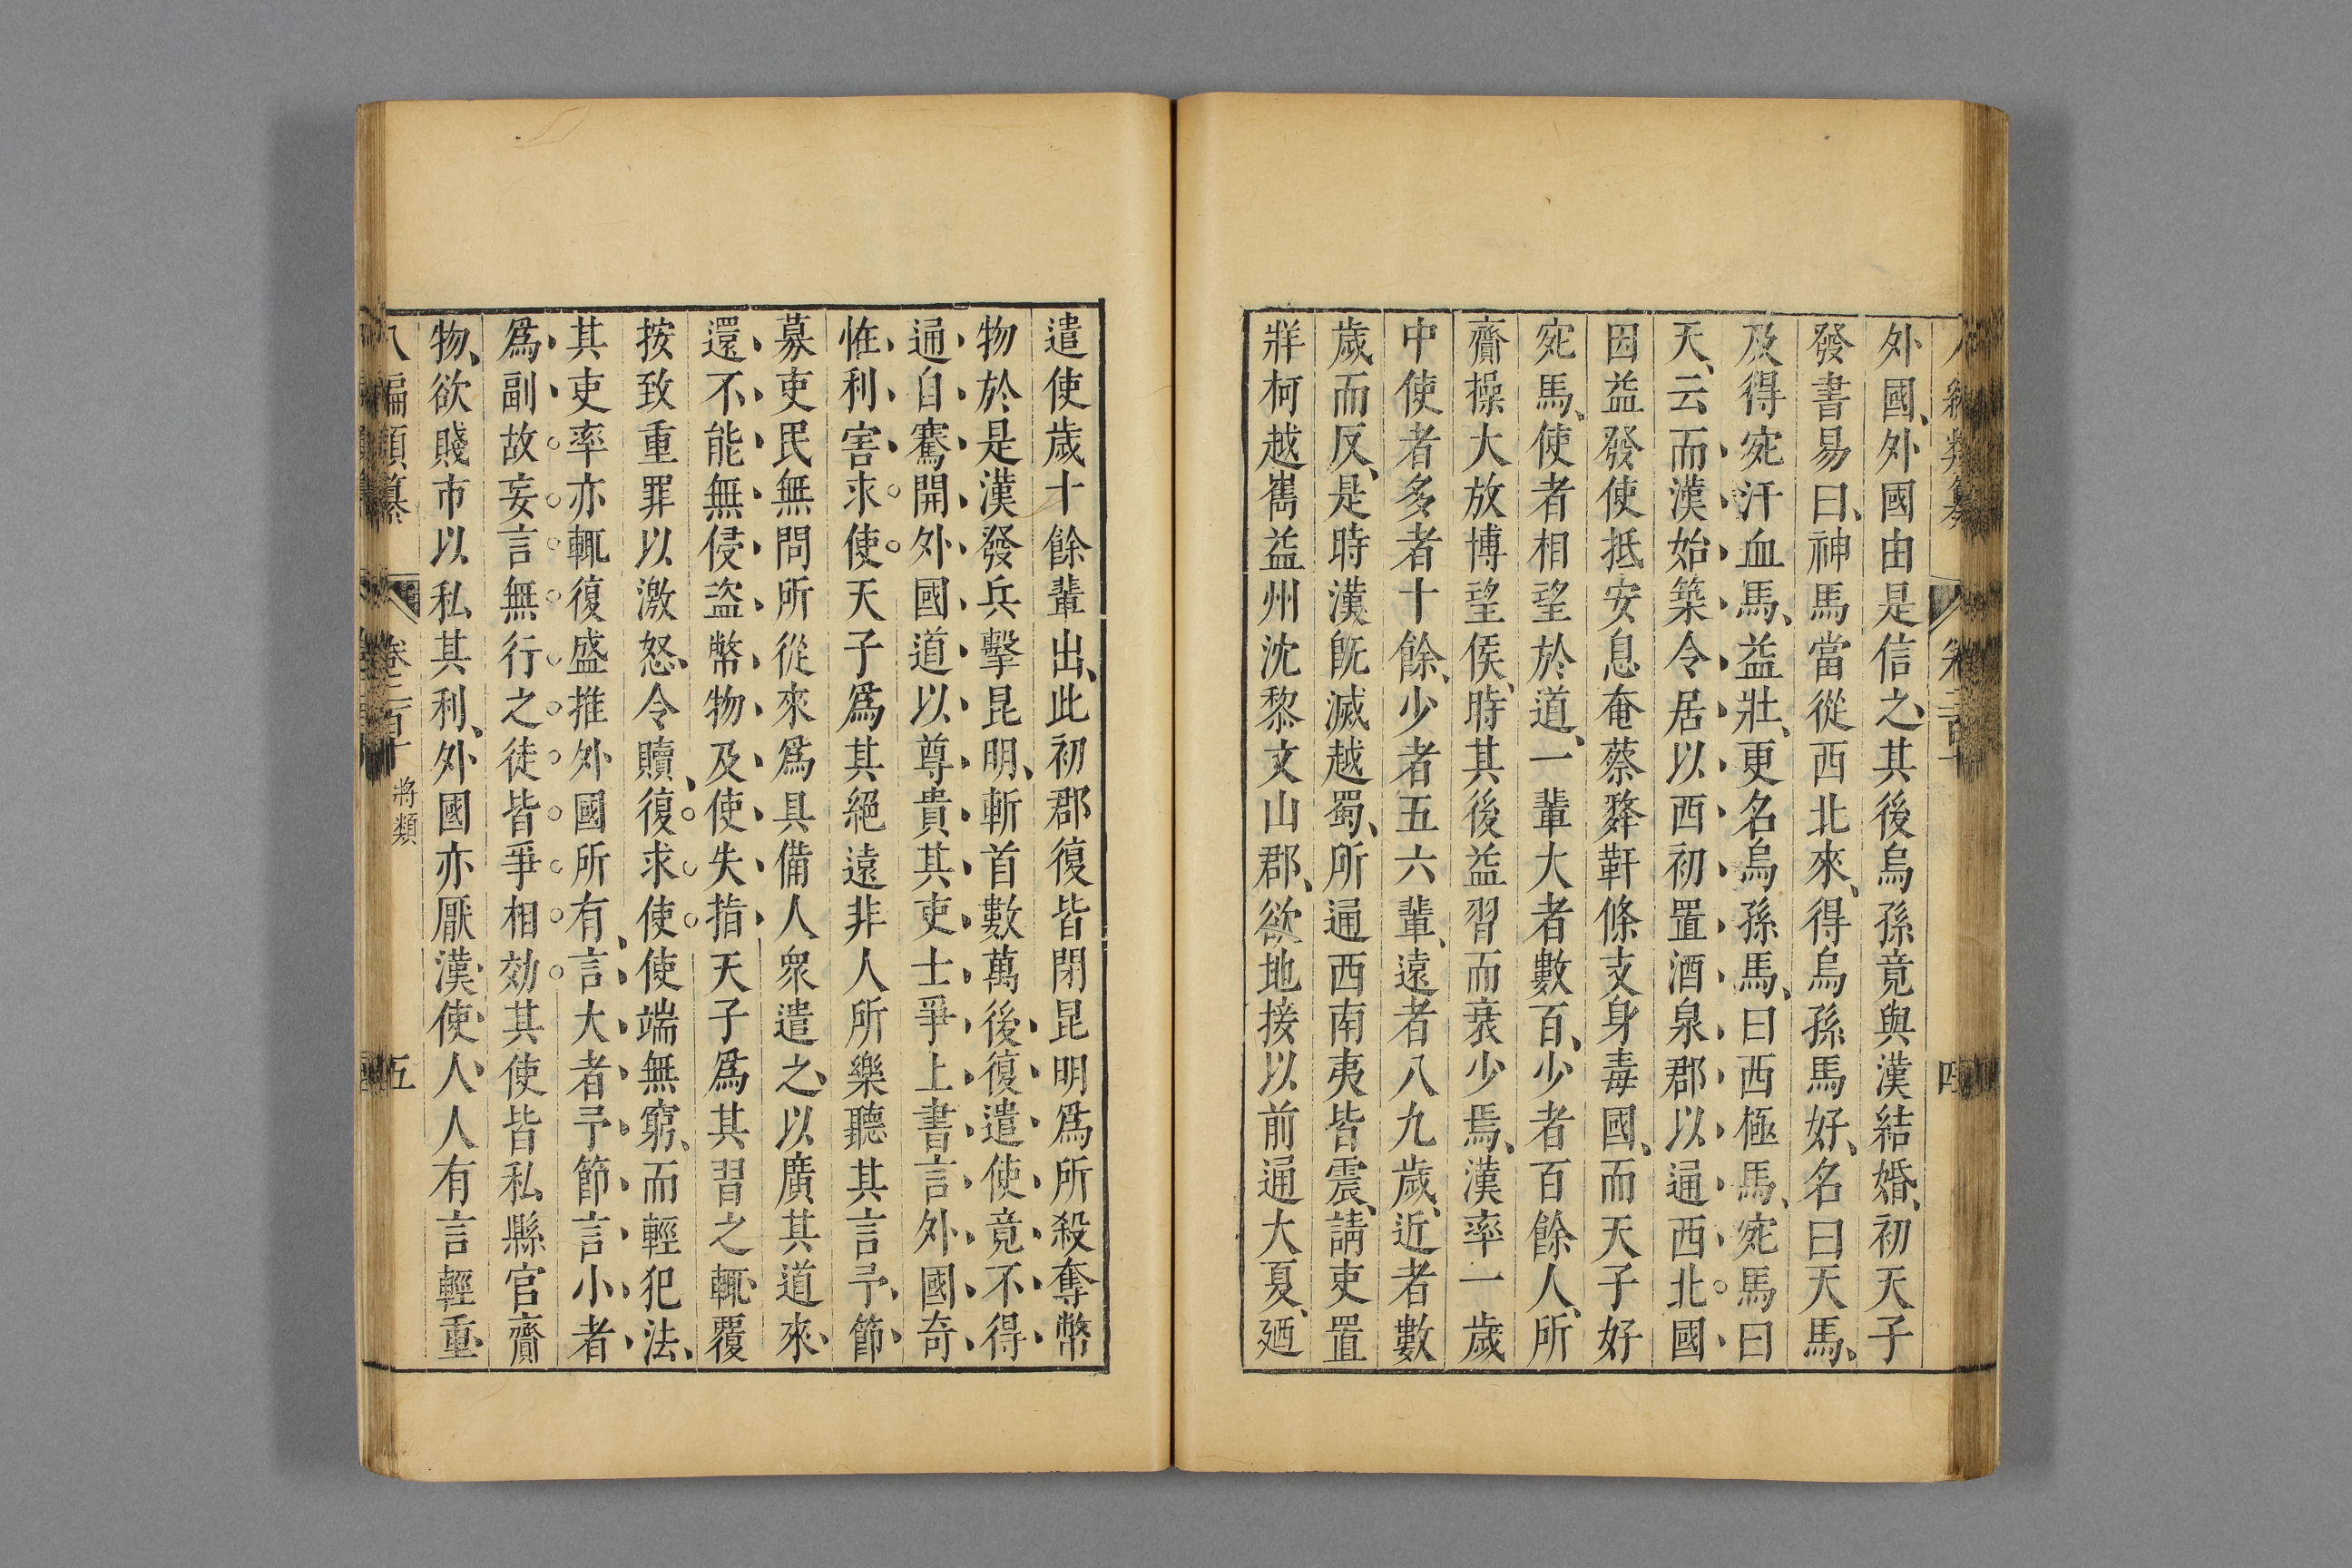 外國、外國由是信之、其後烏孫竟與漢結婚、初天子
發書易曰、神馬當從西北來、得烏孫馬好、名曰天馬、
及得宛汗血馬、益壯、更名烏孫馬、曰西極馬、宛馬曰
天、云而漢始築令居以西初置酒泉郡以通西北國
因益發使抵安息奄蔡犛軒條支身毒國、而天子好
宛馬、使者相望於道、一輩大者數百、少者百餘人、所
齎操大放博望侯、時其後益習而衰少焉、漢率一歲
中使者多者十餘、少者五六輩、遠者八九歲、近者數
歲而反、是時漢旣滅越蜀、所通西南夷皆震、請吏置
牂柯越嶲益州沈黎文山郡、欲地接以前通大夏、廼
遣使歲十餘輩出、此初郡復皆閉昆明爲所殺奪幣
物於是漢發兵擊昆明、斬首數萬後復遣使竟不得
通自騫開外國道以尊貴其吏士爭上書言外國奇
恠利害求使天子爲其絕遠非人所樂聽其言予節
募吏民無問所從來爲具備人衆遣之、以廣其道來
還不能無侵盜幣物及使失指天子爲其習之輒覆
按致重罪以激怒、令贖、復求使使端無窮、而輕犯法、
其吏率亦輒復盛推外國所有、言大者予節言小者
爲副故妄言無行之徒皆爭相効其使皆私縣官齎
物、欲賤市以私其利、外國亦厭漢使、人人有言輕重
八編類纂 卷二百十 將類 五